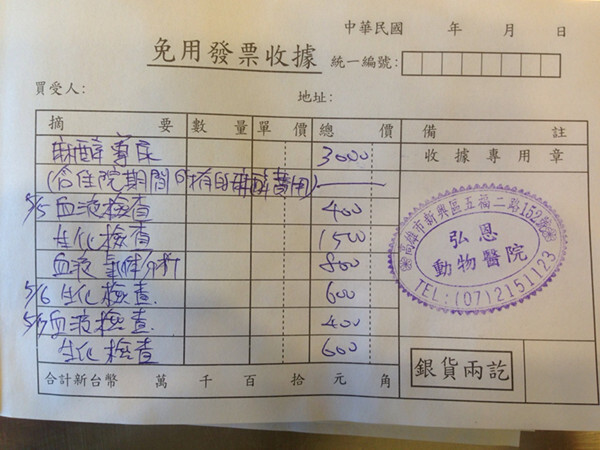 中華民國 年 月 日
免用發票收據
統一編號:
買受人:
地址:
摘要 數量 單價 總價 備註
收據專用章
麻醉 3000
(含住院期間所有的麻醉費用)
5/5 血液檢查 400
生化檢查 1500
血液氣體分析 800
5/6 生化檢查. 600
5/7 血液檢查. 400
生化檢查 600
高雄市新興區五福二路152號
弘恩
動物醫院
TEL:(07)2151123
合計新台幣 萬 千 百 拾 元 角
銀貨兩訖